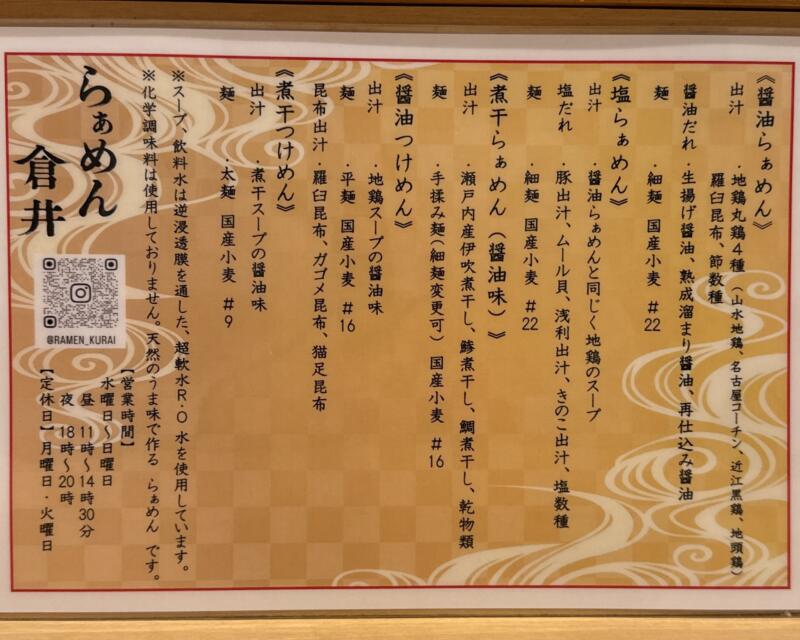 《醤油らぁめん》
出汁 ・地鶏丸鶏4種(山水地鶏、名古屋コーチン、近江黒鶏、地頭鶏)
羅臼昆布、節数種
醤油だれ ・生揚げ醤油、熟成溜まり醤油、再仕込み醤油
麺 ・細麺 国産小麦 #22
《塩らぁめん》
出汁 ・醤油らぁめんと同じく地鶏のスープ
塩だれ ・豚出汁、ムール貝、浅利出汁、きのこ出汁、塩数種
麺 ・細麺 国産小麦 #22
《煮干らぁめん(醤油味)》
出汁 ・瀬戸内産伊吹煮干し、鯵煮干し、鯛煮干し、乾物類
麺 ・手揉み麺(細麺変更可) 国産小麦 #16
《醤油つけめん》
出汁 ・地鶏スープの醤油味
麺 ・平麺 国産小麦 #16
昆布出汁 ・羅臼昆布、ガゴメ昆布、猫足昆布
《煮干つけめん》
出汁 ・煮干スープの醤油味
麺 ・太麺 国産小麦 #9
※スープ、飲料水は逆浸透膜を通した、超軟水R.O水を使用しています。
※化学調味料は使用しておりません。天然のうま味で作る らぁめん です。
らぁめん
倉井
@RAMEN_KURAI
【営業時間】
水曜日〜日曜日
昼 11時〜14時30分
夜 18時〜20時
【定休日】月曜日・火曜日